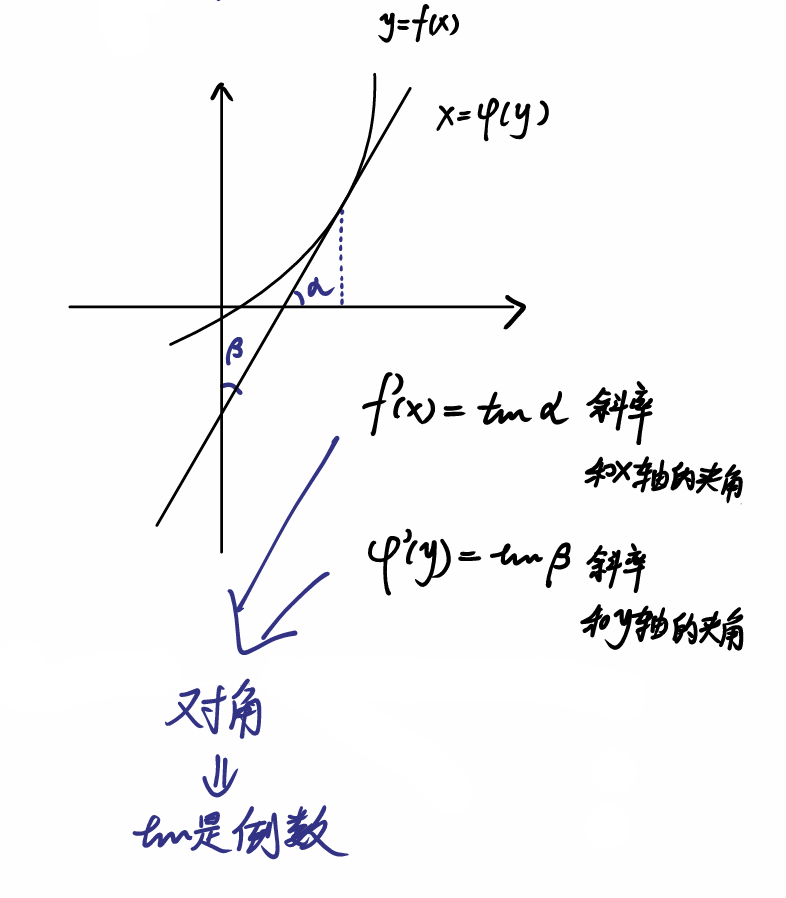 y=f(x)
x=φ(y)
α
β
f'(x)=tanα 斜率
和x轴的夹角
φ'(y)=tanβ 斜率
和y轴的夹角
对角
⇓
tan是倒数